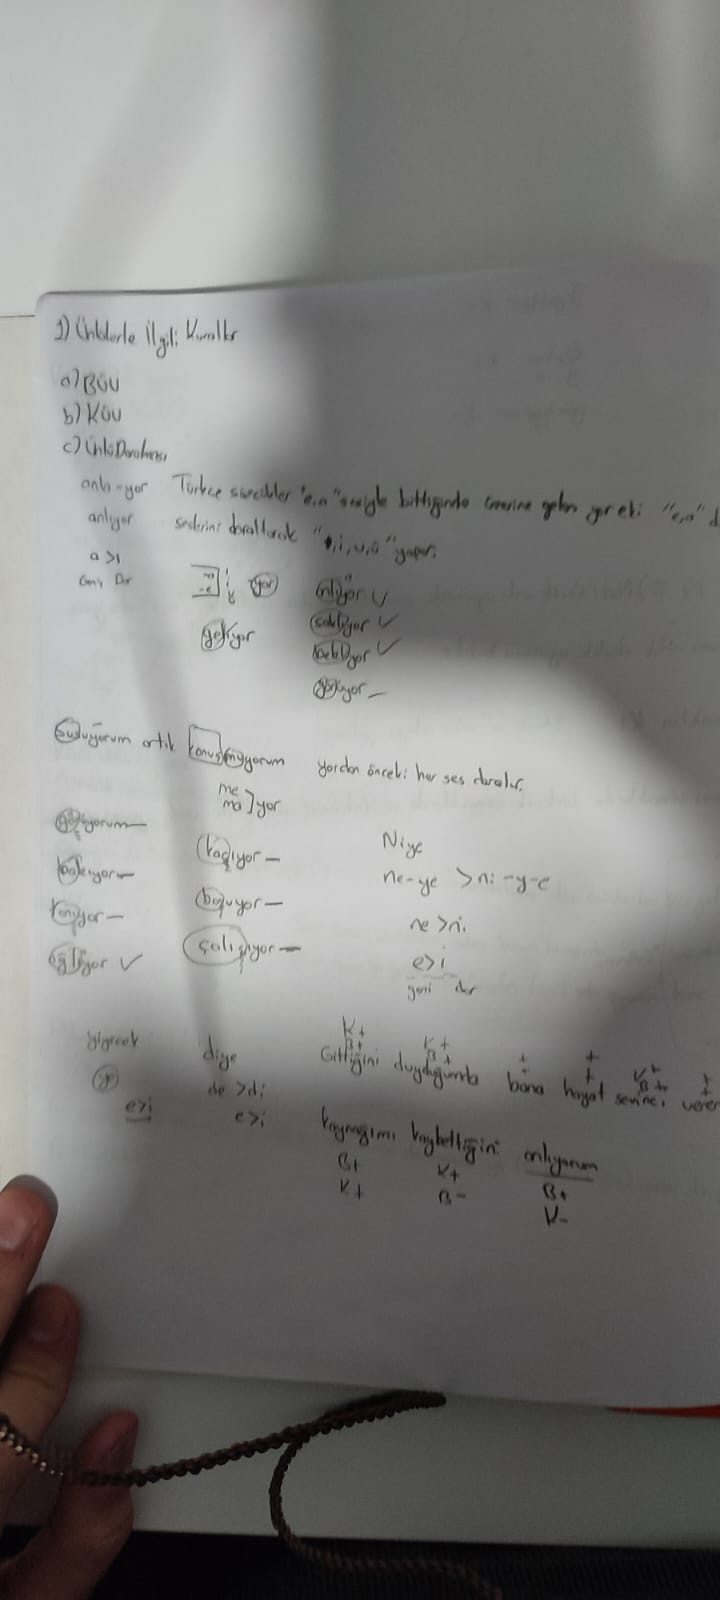 1) Ünlülerle İlgili Kurallar
a) BÜU
b) KÜU
c) Ünlü Daralması
anla-yor Türkçe sözcükler "e,a" sesiyle bittiğinde üzerine gelen yor eki "e,a" d
anlıyor seslerini daraltarak "ı,i,u,ü" yapar.
a>ı
Geniş Dar yor
geliyor
saklıyor ✓
bekliyor ✓
Susuyorum artık konuşmuyorum yordan önceki her ses daralır.
me
ma ] yor
kaçıyor — Niye
bakıyor — ne-ye > ni-y-e
ne > ni
çalışıyor — e>i
geniş dar
yiyecek diye
ye de > di
e>i e>i
K+ K+ + + K+ +
B+ B+ + + B+ +
Gittiğini duyduğumda bana hayat sevinci veren
kaynağımı kaybettiğini anlıyorum
B+ K+ B+
K+ B- K-